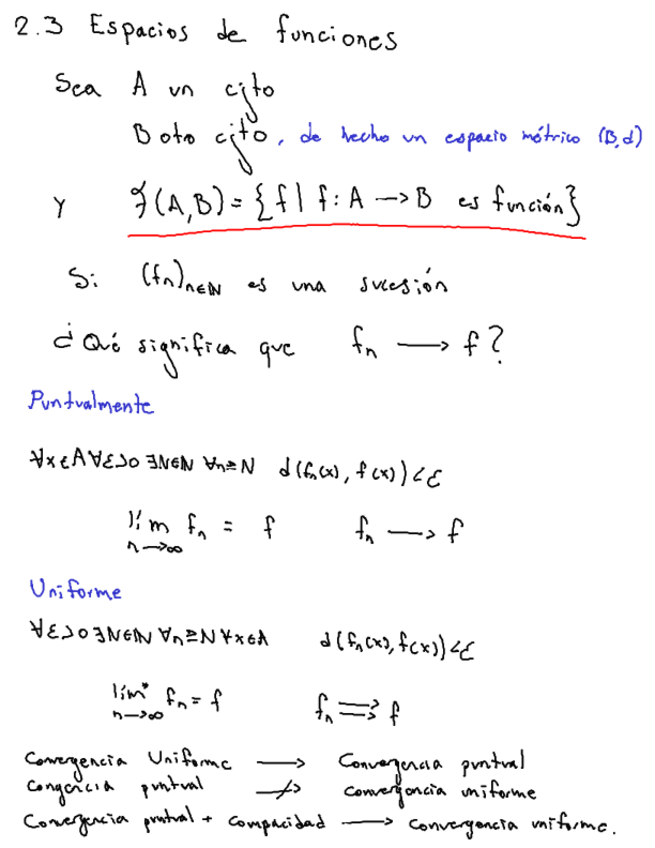 2.3 Espacios de funciones
Sea A un cjto
B otro cjto, de hecho un espacio métrico (B,d)
y 𝓕(A,B) = {f | f: A → B es función}
Si (fₙ)ₙ∈ℕ es una sucesión
¿Qué significa que fₙ → f?
Puntualmente
∀x∈A ∀ε>0 ∃N∈ℕ ∀n≥N d(fₙ(x), f(x)) < ε
lím n→∞ fₙ = f fₙ → f
Uniforme
∀ε>0 ∃N∈ℕ ∀n≥N ∀x∈A d(fₙ(x), f(x)) < ε
lím* n→∞ fₙ = f fₙ ⇉ f
Convergencia Uniforme → Convergencia puntual
Congercia puntual ↛ convergencia uniforme
Convergencia puntual + compacidad → convergencia uniforme.